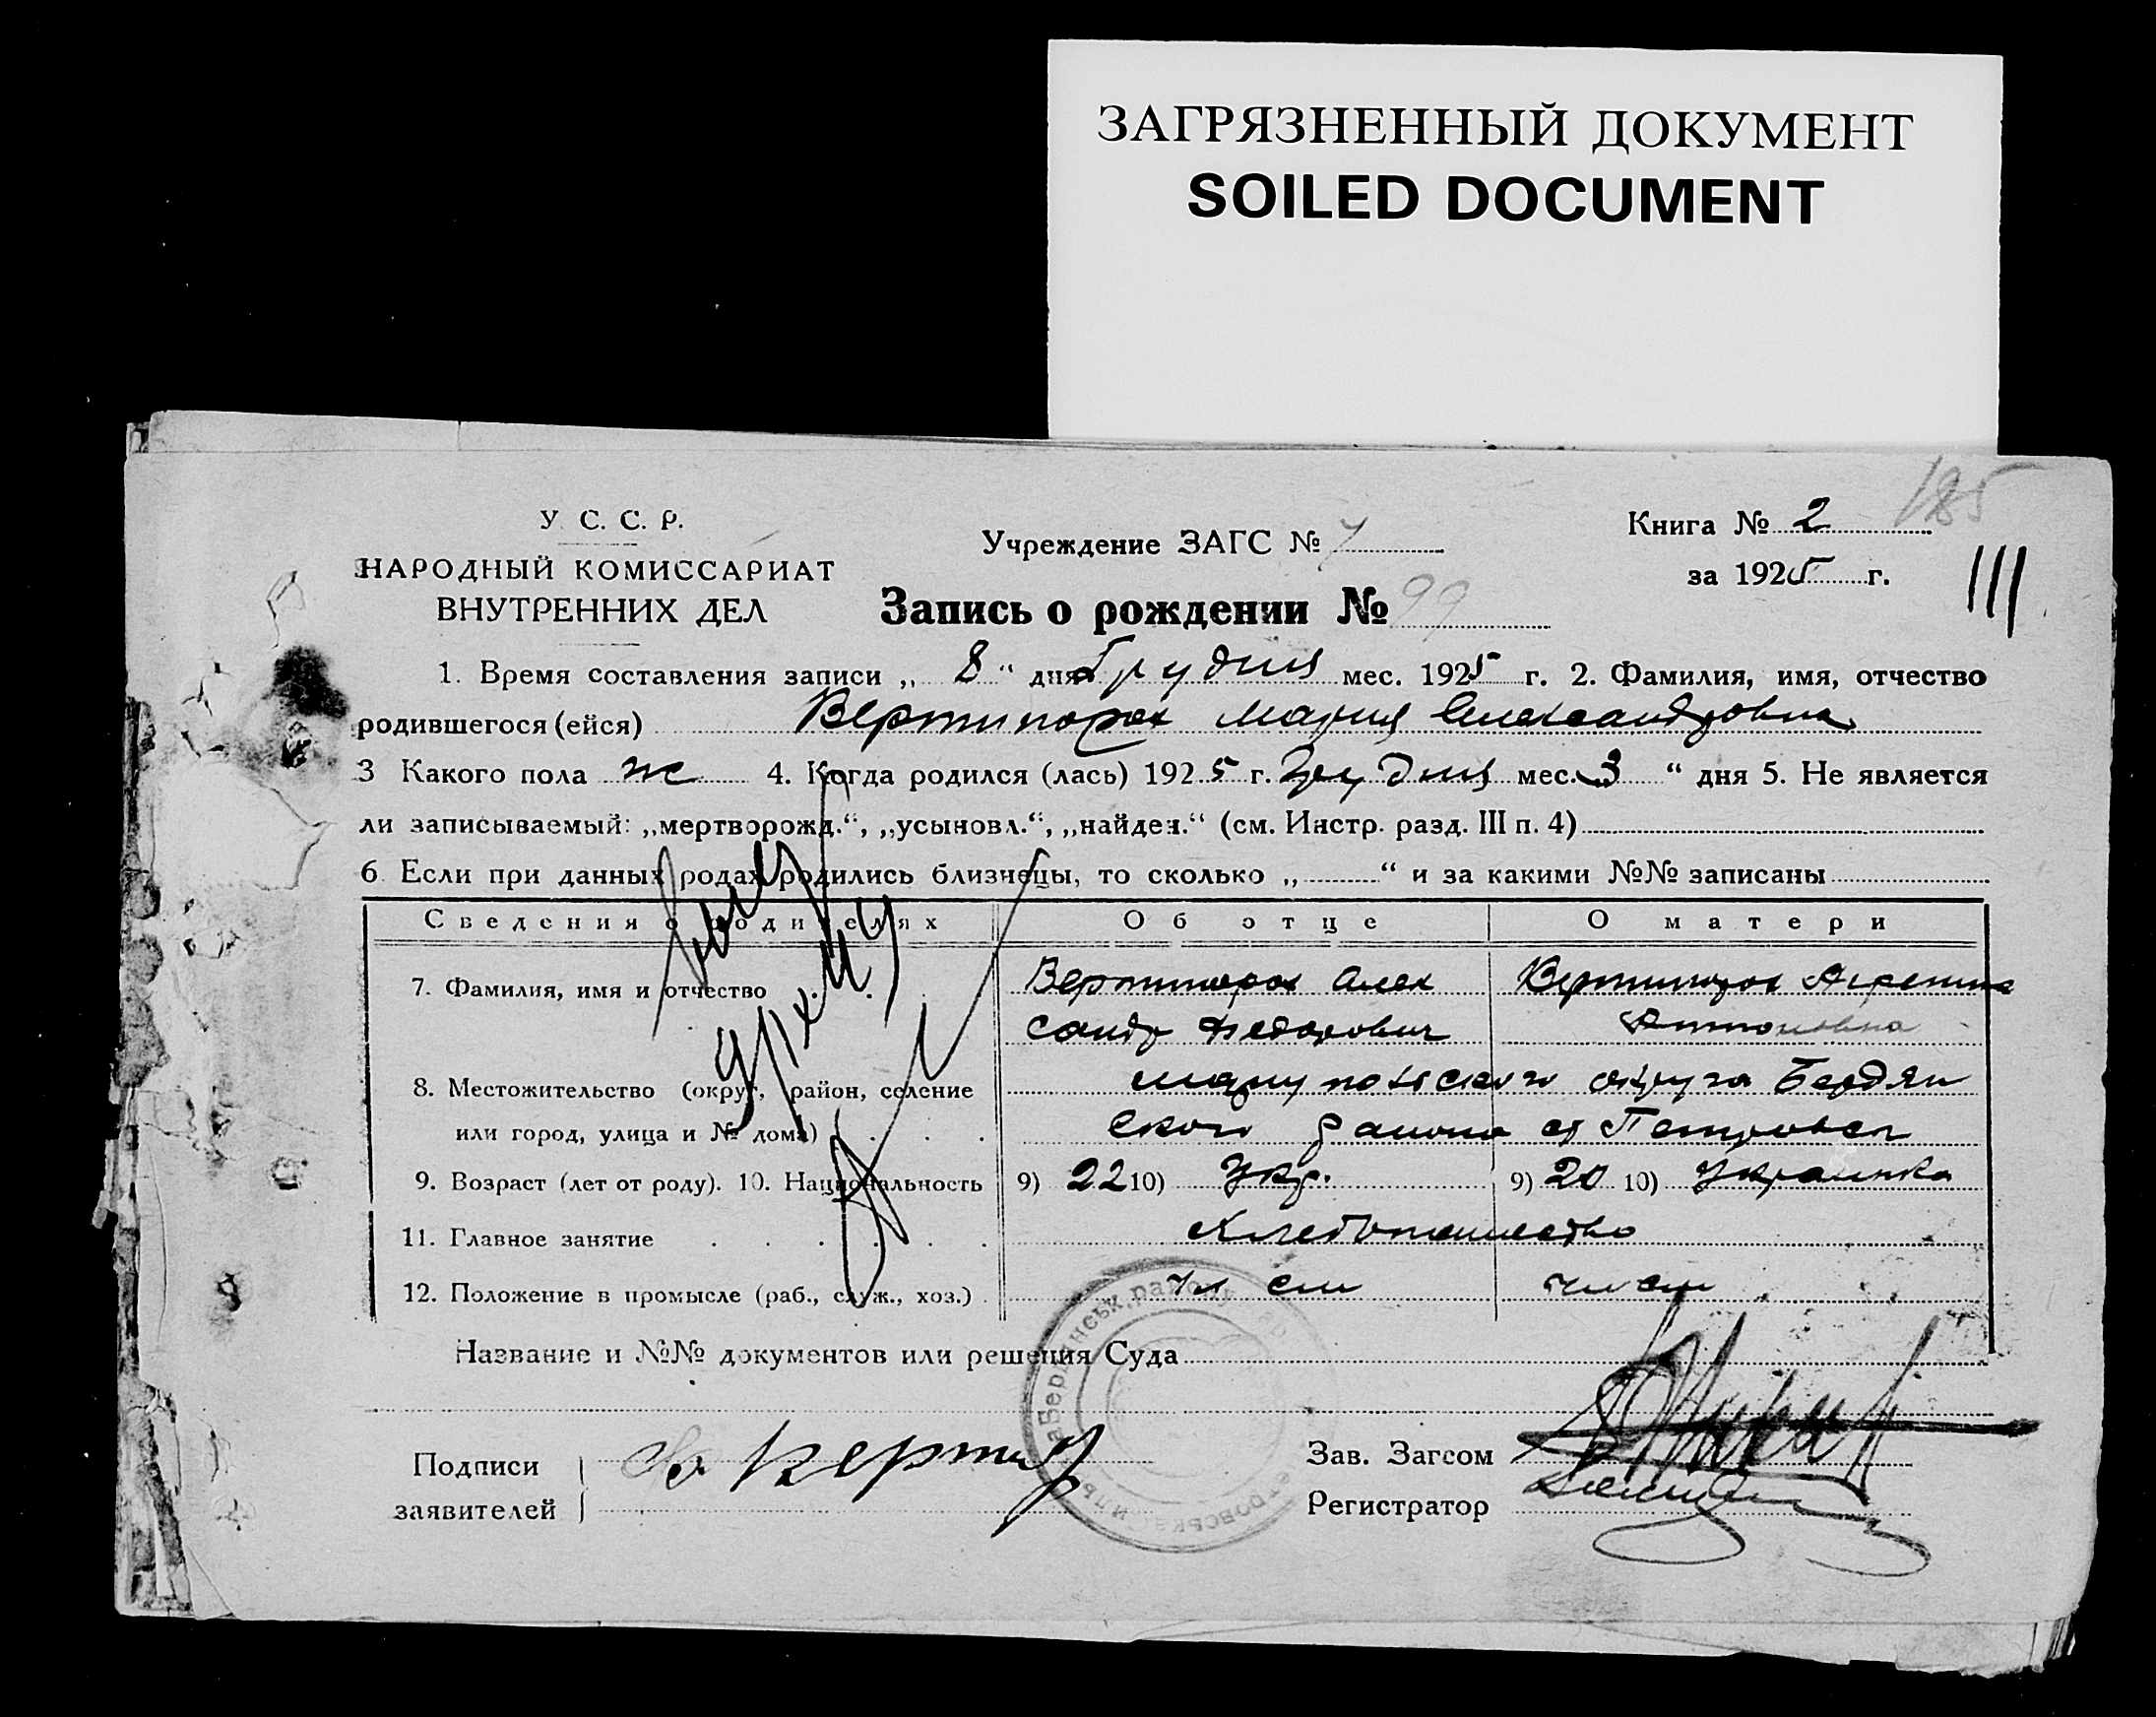 ЗАГРЯЗНЕННЫЙ ДОКУМЕНТ
SOILED DOCUMENT
185
У. С. С. Р.
НАРОДНЫЙ КОМИССАРИАТ
ВНУТРЕННИХ ДЕЛ
Учреждение ЗАГС № 7
Книга № 2
за 1925 г.
111
Запись о рождении № 99
1. Время составления записи „ 8 “ дня Грудня мес. 1925 г. 2. Фамилия, имя, отчество
родившегося (ейся) Вертипорох Мария Александровна
3 Какого пола ж 4. Когда родился (лась) 1925 г. Грудня мес. 3 “ дня 5. Не является
ли записываемый: „мертворожд.“, „усыновл.“, „найден.“ (см. Инстр. разд. III п. 4)
6. Если при данных родах родились близнецы, то сколько „ “ и за какими №№ записаны
Сведения о родителях Об отце О матери
7. Фамилия, имя и отчество Вертипорох Алек Вертипорох Агрепина
сандр Федорович Антоновна
8. Местожительство (округ, район, селение Мариупольского округа Бердян
или город, улица и № дома) ского района Петровка
9. Возраст (лет от роду). 10. Национальность 9) 22 10) Укр. 9) 20 10) Украинка
11. Главное занятие Хлебопашество
12. Положение в промысле (раб., служ., хоз.) чл сем чл сем
Название и №№ документов или решения Суда
Бердянськ. району
Подписи
заявителей
Зав. Загсом
Регистратор